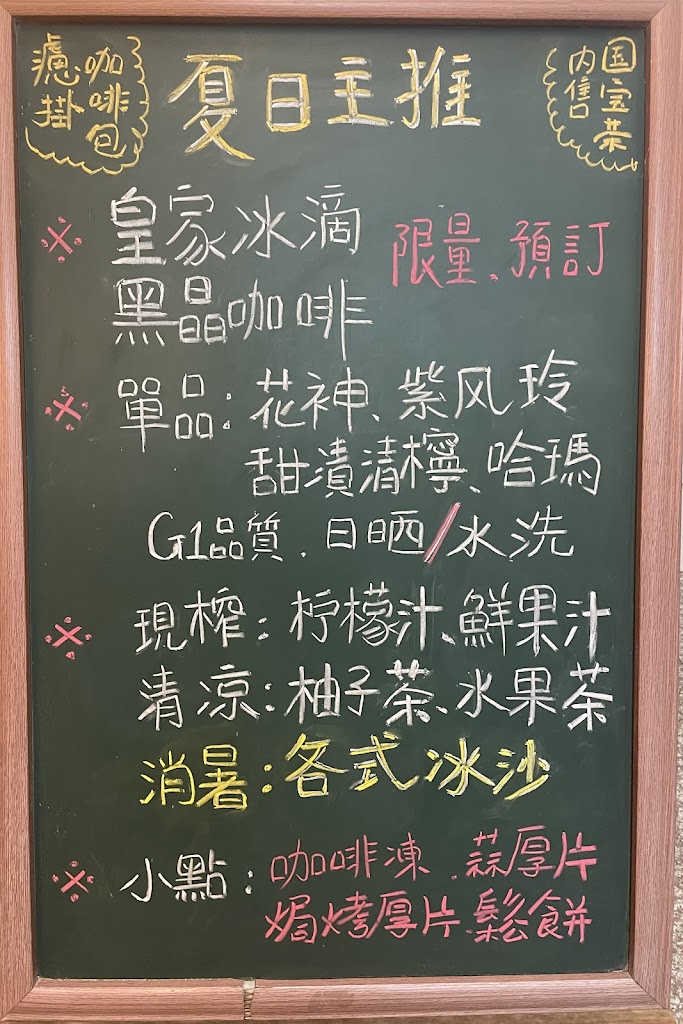 濾掛
咖啡包
夏日主推
国宝茶
内信口
※ 皇家冰滴
黑晶咖啡
限量、預訂
※ 單品：花神、紫风玲
甜漬清檸、哈瑪
G1品質．日晒/水洗
※ 現榨：柠檬汁、鮮果汁
清凉：柚子茶、水果茶
消暑：各式冰沙
※ 小點：咖啡凍．蒜厚片
焗烤厚片．鬆餅